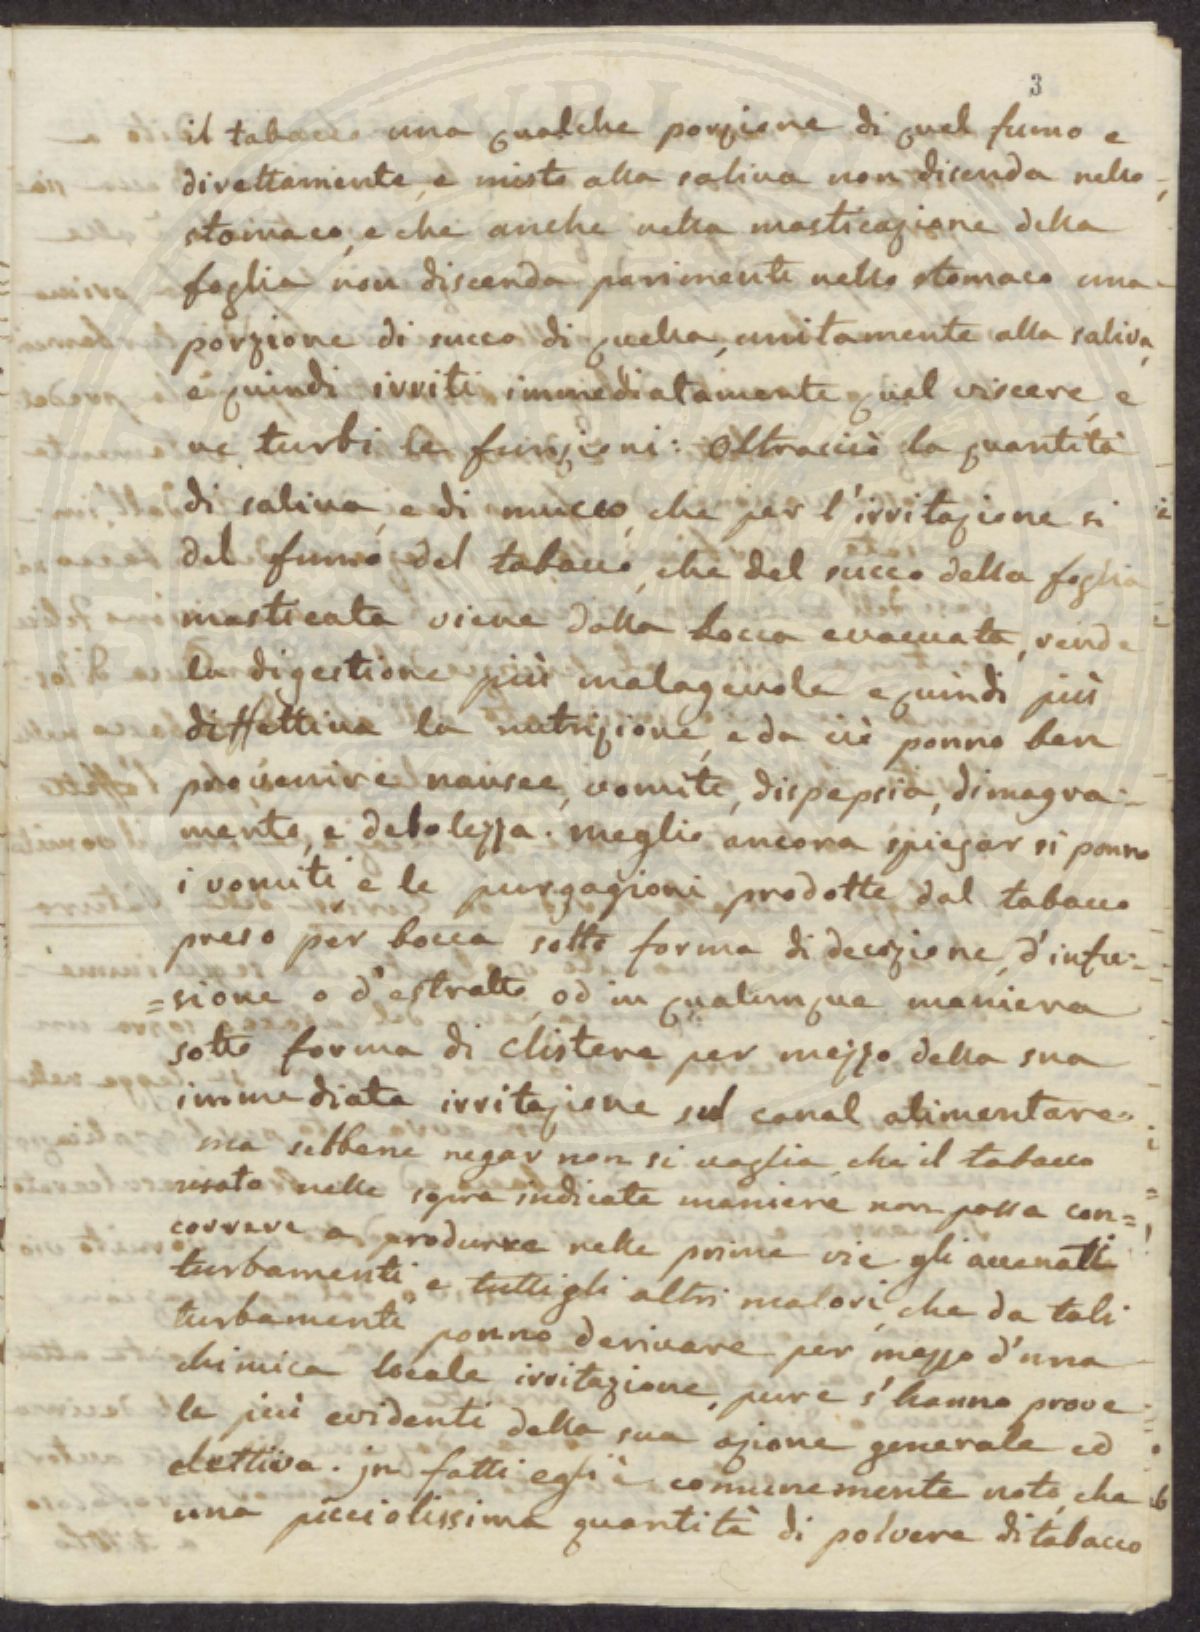 3
il tabacco una qualche porzione di quel fumo e
direttamente, e misto alla saliva non discenda nello
stomaco, e che anche nella masticazione della
foglia non discenda parimenti nello stomaco una
porzione di succo di quella, unitamente alla saliva,
e quindi irriti immediatamente quel viscere, e
ne turbi le funzioni: Oltracciò la quantità
di saliva, e di mucco, che per l'irritazione sì
del fumo del tabacco, che del succo della foglia
masticata viene dalla bocca evacuata, rende
la digestione più malagevole e quindi più
diffettiva la nutrizione, e da ciò ponno ben
provenire nausee, vomiti, dispepsia, dimagra-
mento, e debolezza. Meglio ancora spiegar si ponno
i vomiti e le purgagioni prodotte dal tabacco
preso per bocca sotto forma di decozione, d'infu-
=sione o d'estratto, od in qualunque maniera
sotto forma di clistere per mezzo della sua
immediata irritazione sul canal alimentare.
ma sebbene negar non si voglia, che il tabacco
usato nelle sopra indicate maniere non possa con=
correre a produrre nelle prime vie gli accenatti
turbamenti, e tutti gli altri malori, che da tali
turbamenti ponno derivare per mezzo d'una
chimica locale irritazione, pure s'hanno prove
le più evidenti della sua azione generale ed
elettiva. In fatti egli è comunemente noto, che
una picciolissima quantità di polvere di tabacco